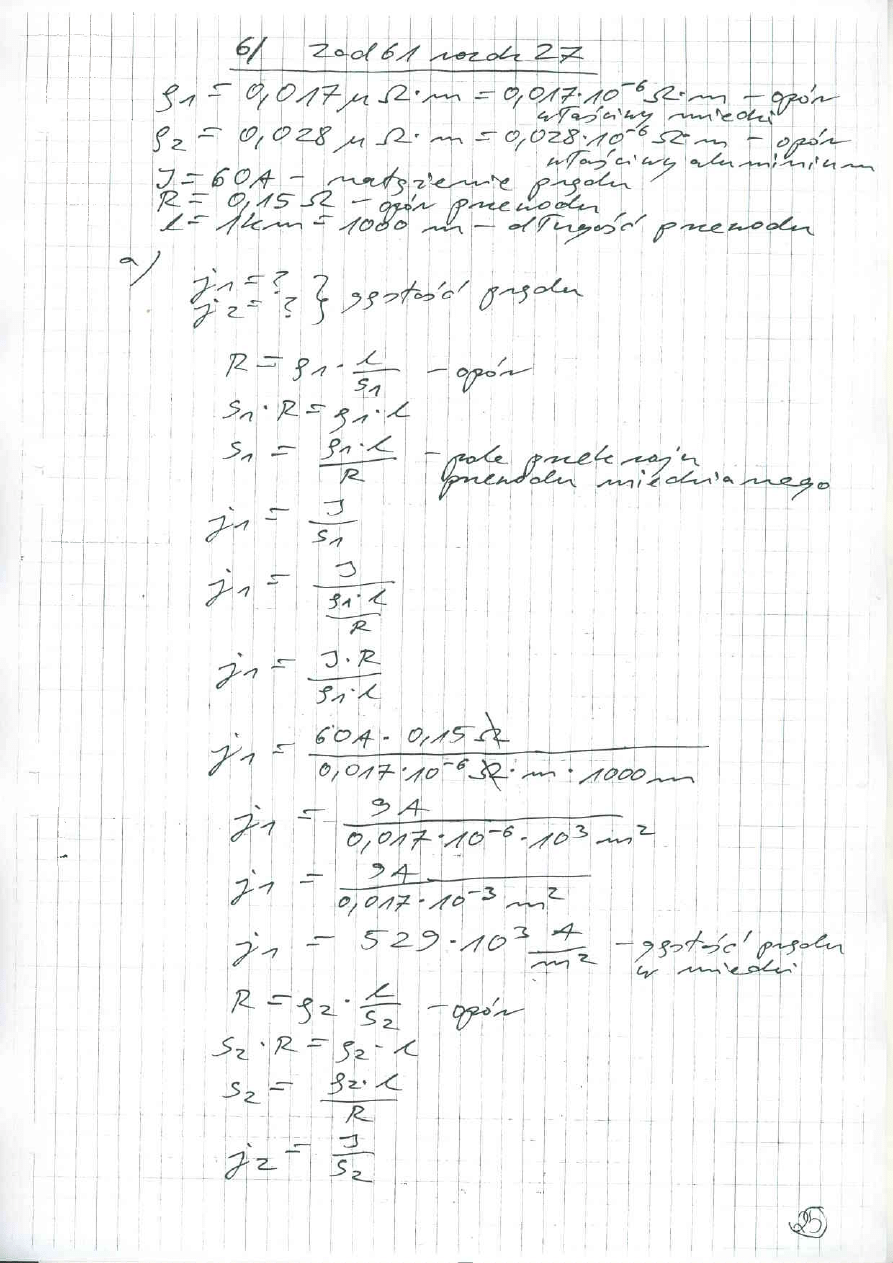 6/ zad 61 rozdz 27
ρ1 = 0,017 μ Ω·m = 0,017·10⁻⁶ Ω·m – opór
właściwy miedzi
ρ2 = 0,028 μ Ω·m = 0,028·10⁻⁶ Ω·m – opór
właściwy aluminium
J = 60A – natężenie prądu
R = 0,15 Ω – opór przewodu
l = 1km = 1000 m – długość przewodu
a)
j1 = ?
j2 = ? } gęstość prądu
R = ρ1 · l/S1 – opór
S1 · R = ρ1 · l
S1 = ρ1·l/R – pole przekroju
przewodu miedzianego
j1 = J/S1
j1 = J/(ρ1·l/R)
j1 = J·R/ρ1·l
j1 = 60A · 0,15 Ω/0,017·10⁻⁶ Ω·m · 1000 m
j1 = 9A/0,017·10⁻⁶·10³ m²
j1 = 9A/0,017·10⁻³ m²
j1 = 529·10³ A/m² – gęstość prądu
w miedzi
R = ρ2 · l/S2 – opór
S2 · R = ρ2 · l
S2 = ρ2·l/R
j2 = J/S2
25